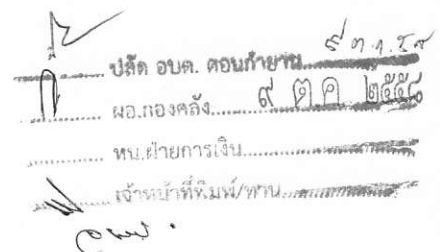 ปลัด อบต. ดอนกำยาน ๙ ต.ค. ๕๘
ผอ.กองคลัง ๙ ตค ๒๕๕๘
หน.ฝ่ายการเงิน
เจ้าหน้าที่พิมพ์/ทาน